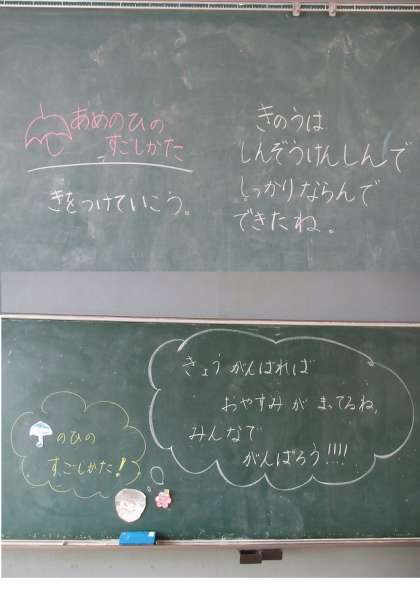 あめのひの
すごしかた
きをつけていこう。
きのうは
しんぞうけんしんで
しっかりならんで
できたね。
きょうがんばれば
おやすみがまってるね。
みんなで
がんばろう!!!!
のひの
すごしかた!